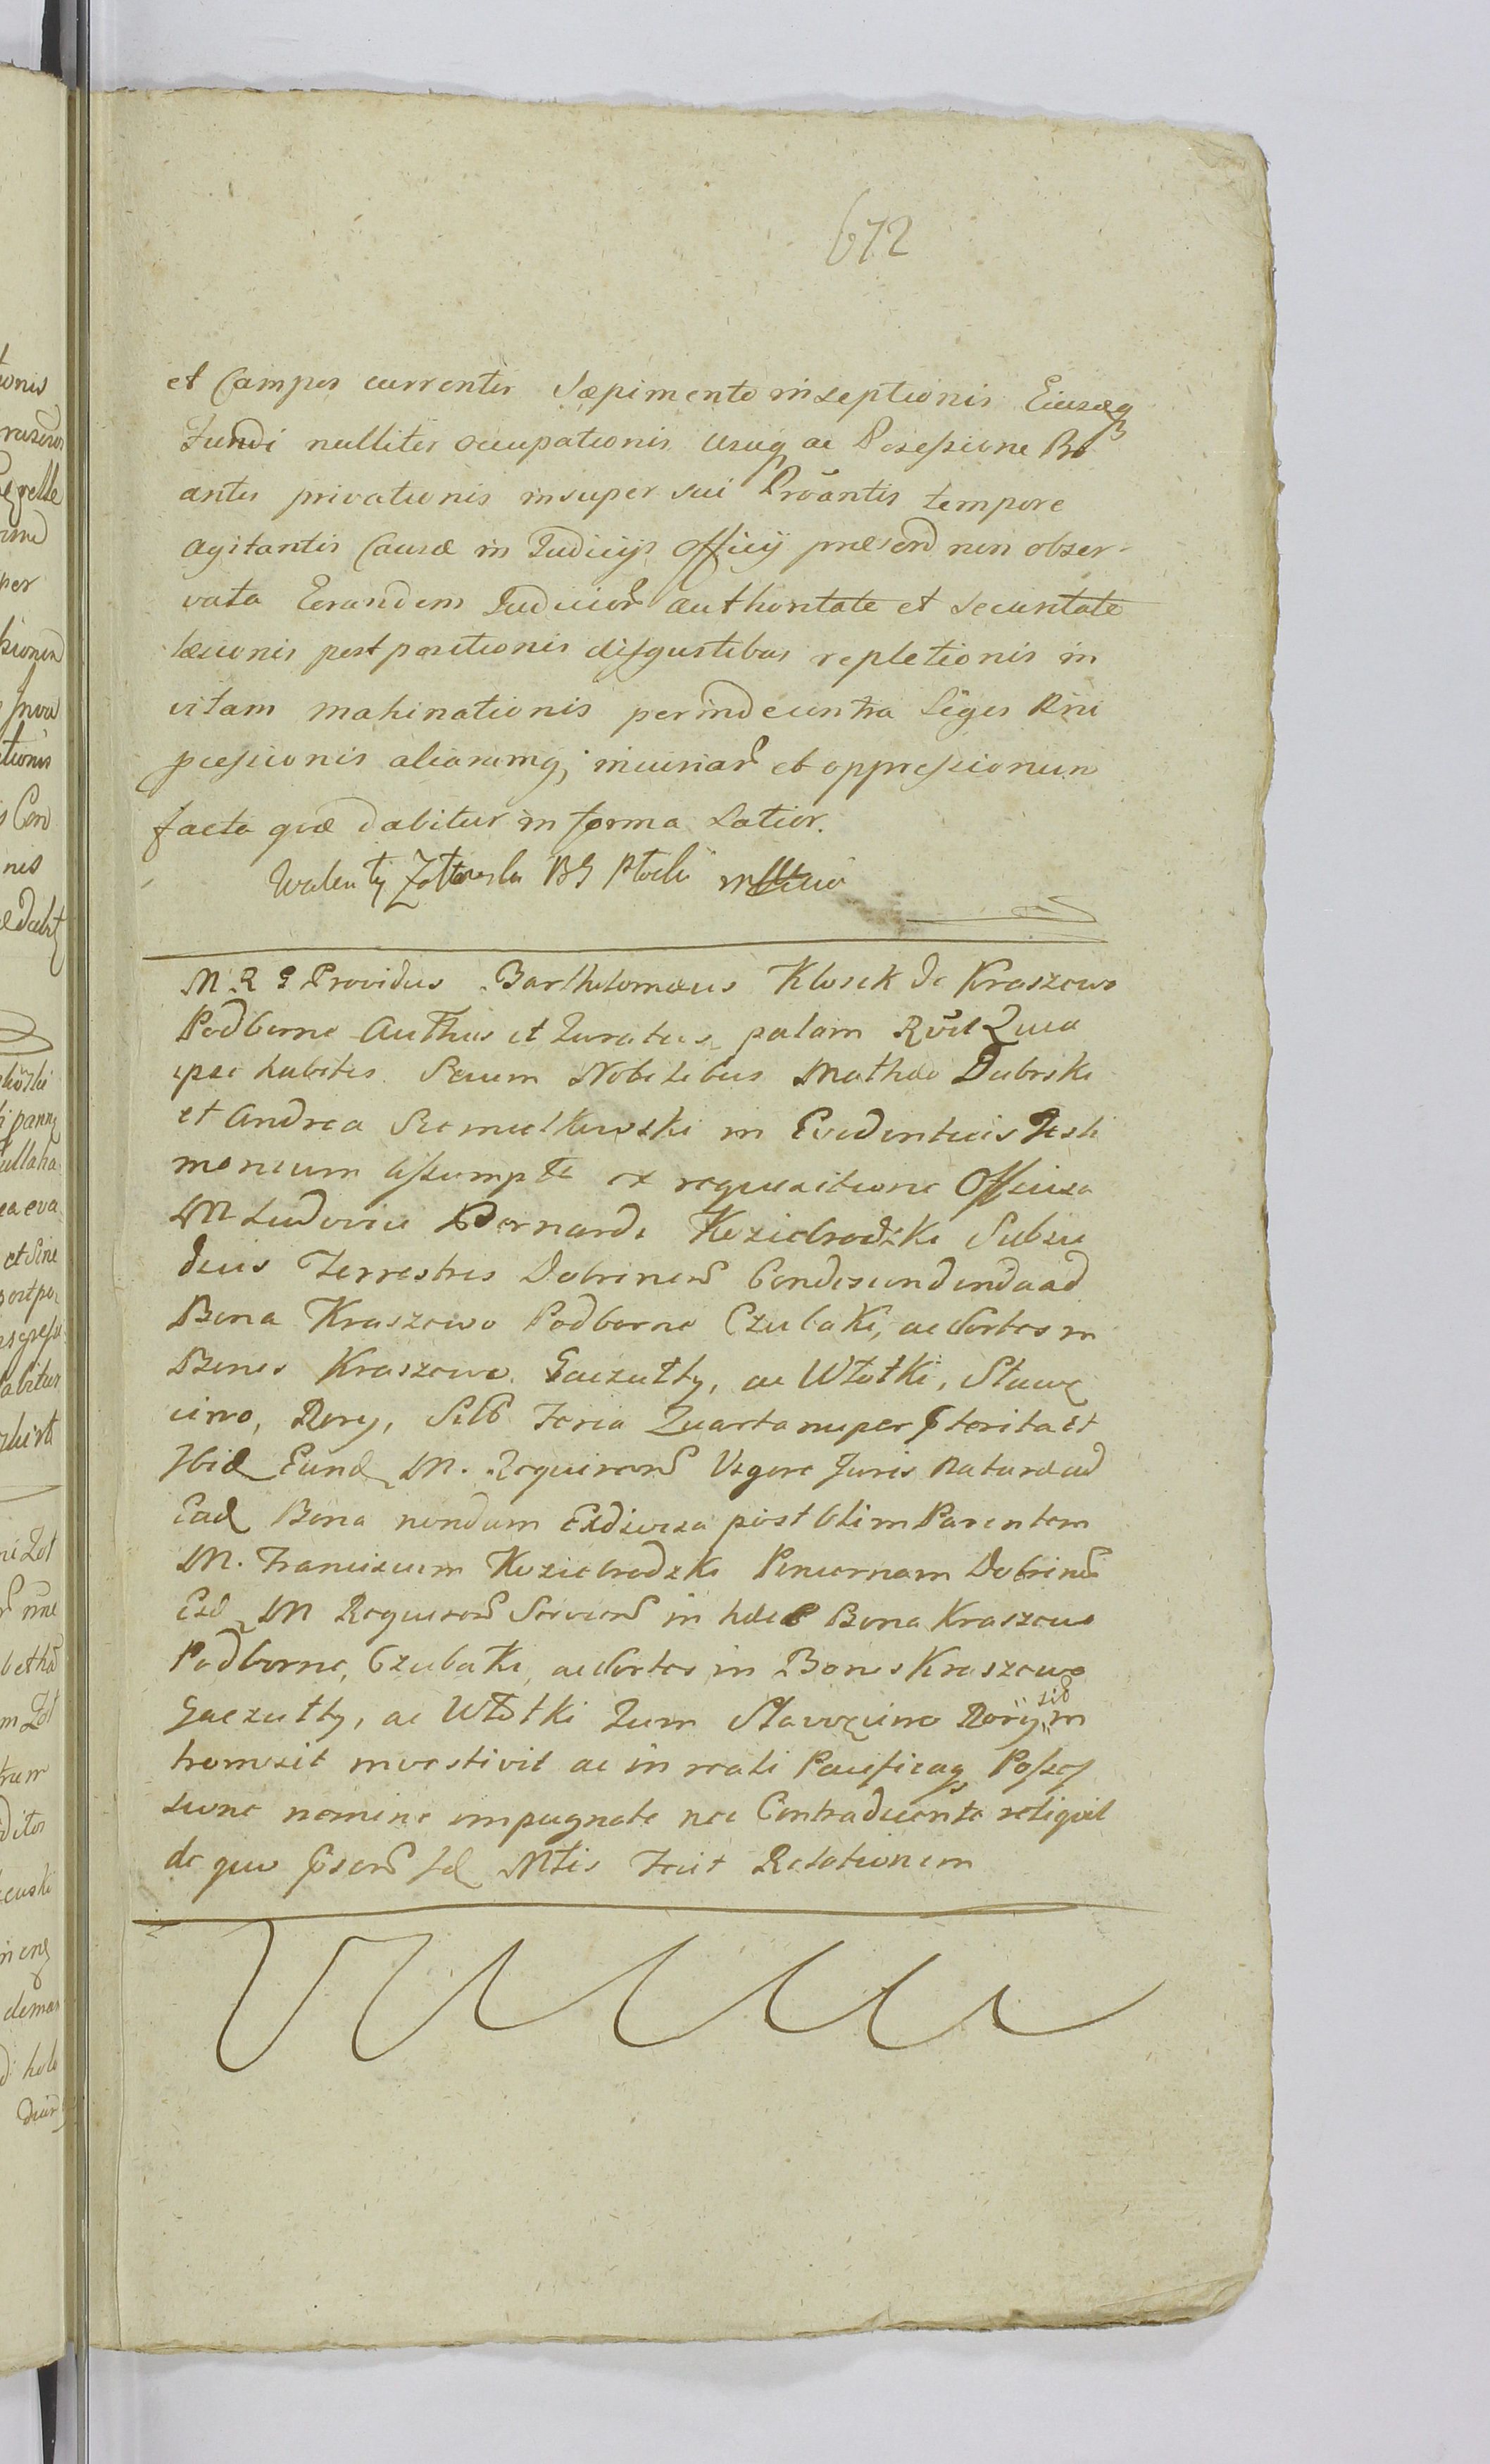 672
et Campos currentis Sæpimento inseptionis Eiusdēq
Fundi nulliter occupationis usuq ac Posessione Pro
antis privationis insuper sui Proantis tempore
agitantis Causæ in Judicijs Officij præsend non obser-
vata Eorundem Judicior authoritate et securitate
læsionis postpositionis disgustibus repletionis in
vitam mahinationis perinde contra Leges Rni
pcessionis aliarumq iniuriar et oppressionum
facta quæ dabitur in forma Latior.
Walenty BG Płocki
M. R. G Providus Bartholomæus Klosek de Kraszewo
Podborne Authus et Juratus palam Rōvit Quia
ipse habitis Secum Nobilibus Matheo Dubrski
et Andrea in Evidentius Testi
monium assumptis ex requisitione Officiosa
M Ludovici Bernardi Koziebrodzki Subiu
dicis Terrestris Dobrinens Condescendendo ad
Bona Kraszewo Podborne Czubaki, ac Sortes in
Bonis Kraszewo Gaczułty, ac Wtotki, Sławę
cino, Rory, Sitt Feria Quarta nuper pterita Et
Ibid Eund M. Requirend Vigore Juris Naturæ ad
Ead Bona nondum Exdivisa post Olim Parentem
M. Franciscum Koziebrodzki Pincernam Dobrinens
Esd M Requirend Serviens in hæc Bona Kraszewo
Podborne, Czubaki, ac Sortes in Bonis Kraszewo
Gaczułty, ac Wtotki Tum Sławęcino Rory sitt in
tromisit investivit ac in reali Pacificaq Posses
sione nemine impugnante nec Contradicente reliquit
de quo psens sd Mtis Fecit Relationem